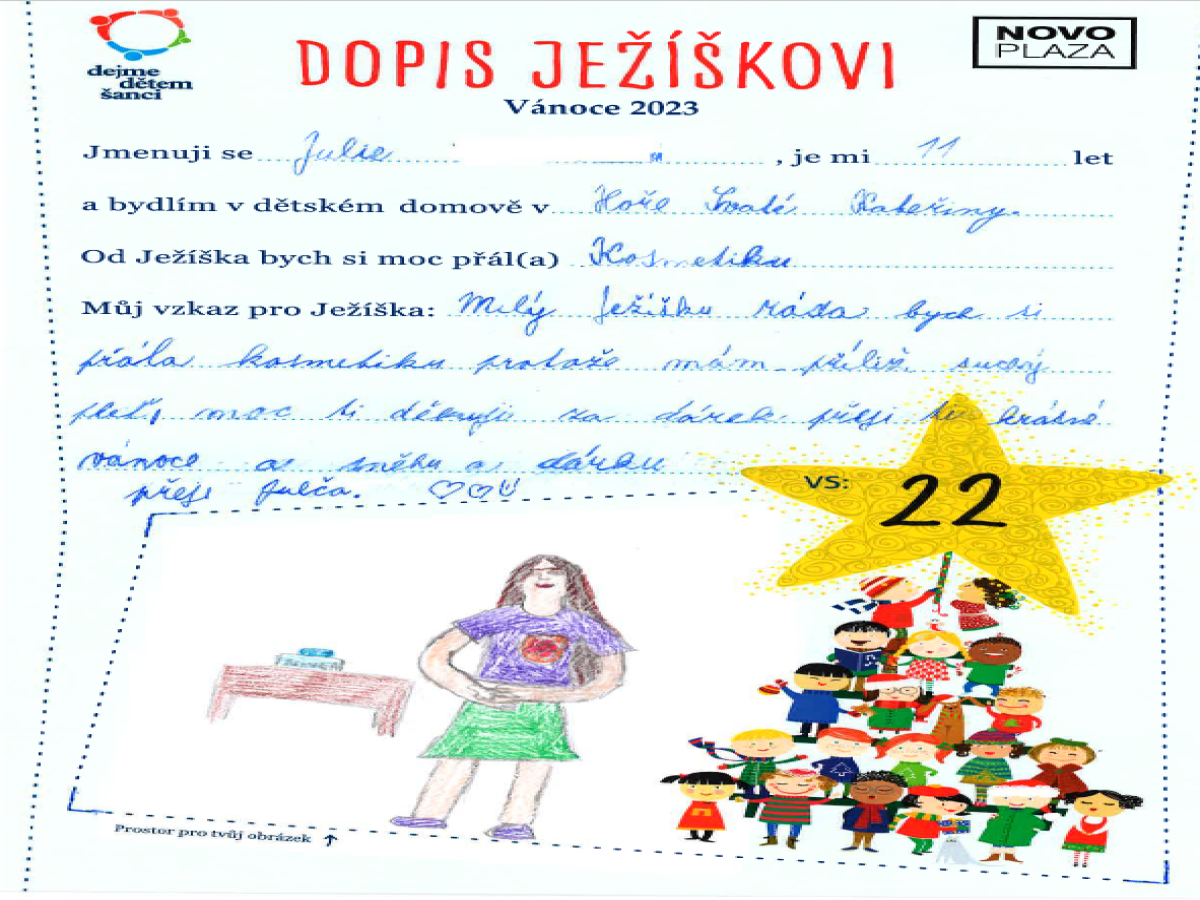 dejme
dětem
šanci
DOPIS JEŽÍŠKOVI
NOVO
PLAZA
Vánoce 2023
Jmenuji se Julie , je mi 11 let
a bydlím v dětském domově v Hoře Svaté Kateřiny.
Od Ježíška bych si moc přál(a) Kosmetiku
Můj vzkaz pro Ježíška: Milý Ježíšku ráda bych si
přála kosmetiku protože mám příliž suchý
pleť, moc ti děkuji za dárek přeji ti krásné
vánoce a sněhu a dárku
přeje Julča.
VS: 22
Prostor pro tvůj obrázek